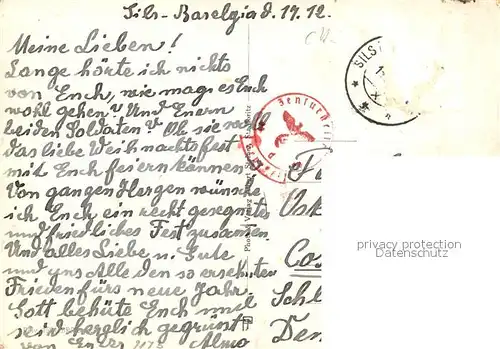 Sils-Baselgia d. 19.12.
Meine Lieben!
Lange hörte ich nichts
von Euch, wie mag es Euch
wohl gehen? Und Euern
beiden Soldaten? Ob sie wohl
das liebe Weihnachtsfest
mit Euch feiern können.
Von ganzen Herzen wünsche
ich Euch ein recht gesegnetes
und friedliches Fest zusamen
Und alles Liebe u. Gute
und uns Alle den so ersehnten
Frieden fürs neue Jahr.
Gott behüte Euch und
seid herzlich gegrüsst
von Eurer Almo
SILS
Zensur
privacy protection
Datenschutz